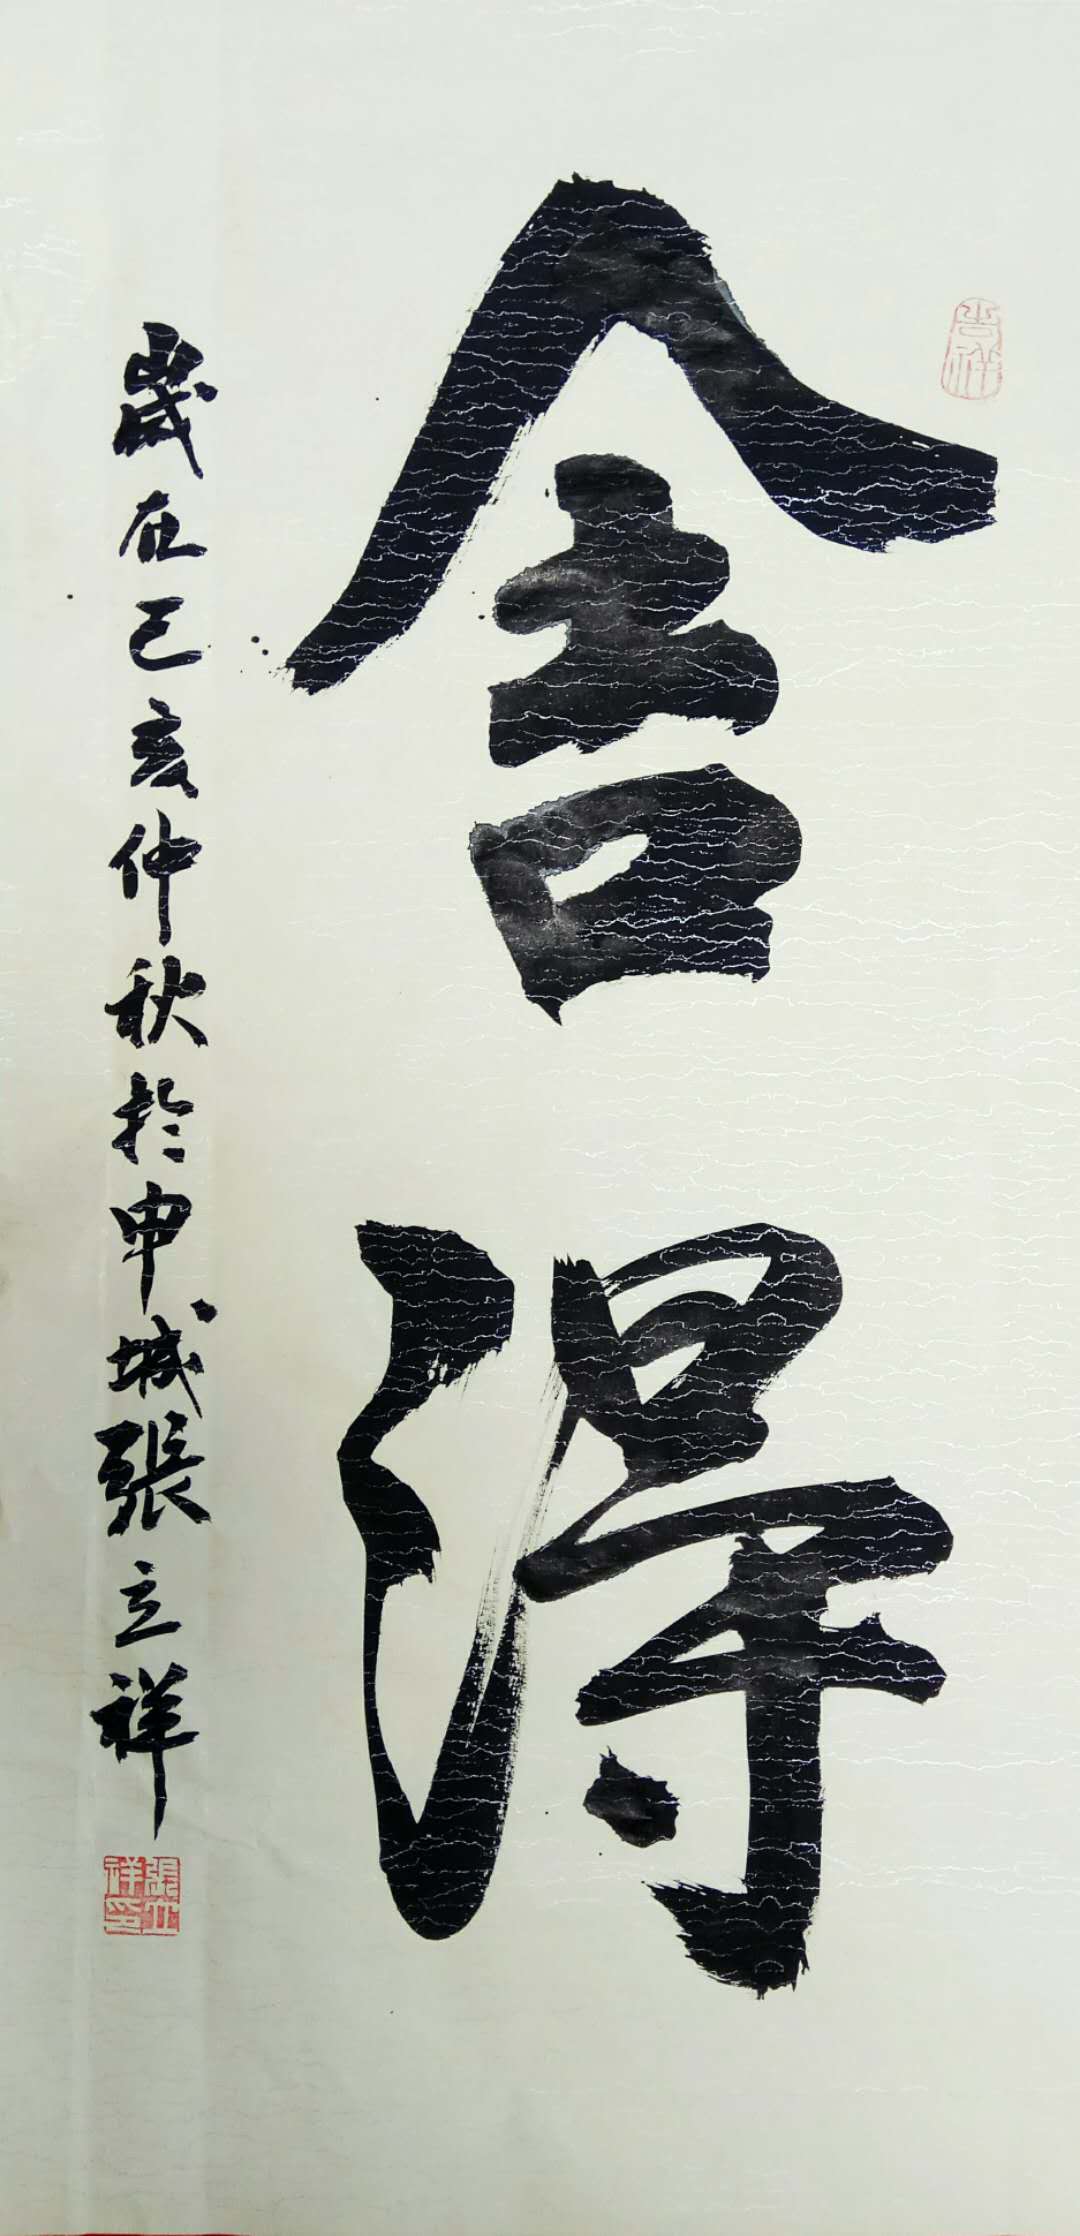 舍得
歲在己亥仲秋於申城張立祥
吉祥
張立祥印